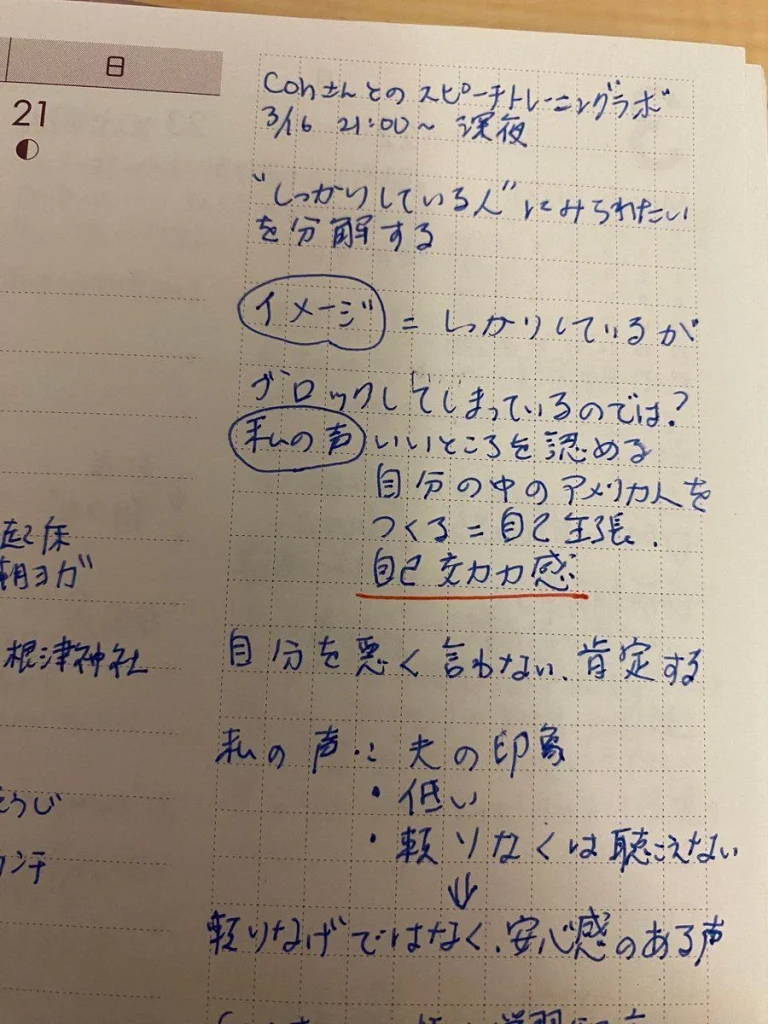 日
21
起床
朝ヨガ
根津神社
Conさんとのスピーチトレーニングラボ
3/16 21:00〜 深夜
"しっかりしている人"にみられたい
を分解する
イメージ = しっかりしているが
ブロックしてしまっているのでは?
私の声 いいところを認める
自分の中のアメリカ人を
つくる=自己主張.
自己効力感
自分を悪く言わない、肯定する
私の声:夫の印象
・低い
・頼りなくは聴こえない
↓
頼りなげではなく、安心感のある声